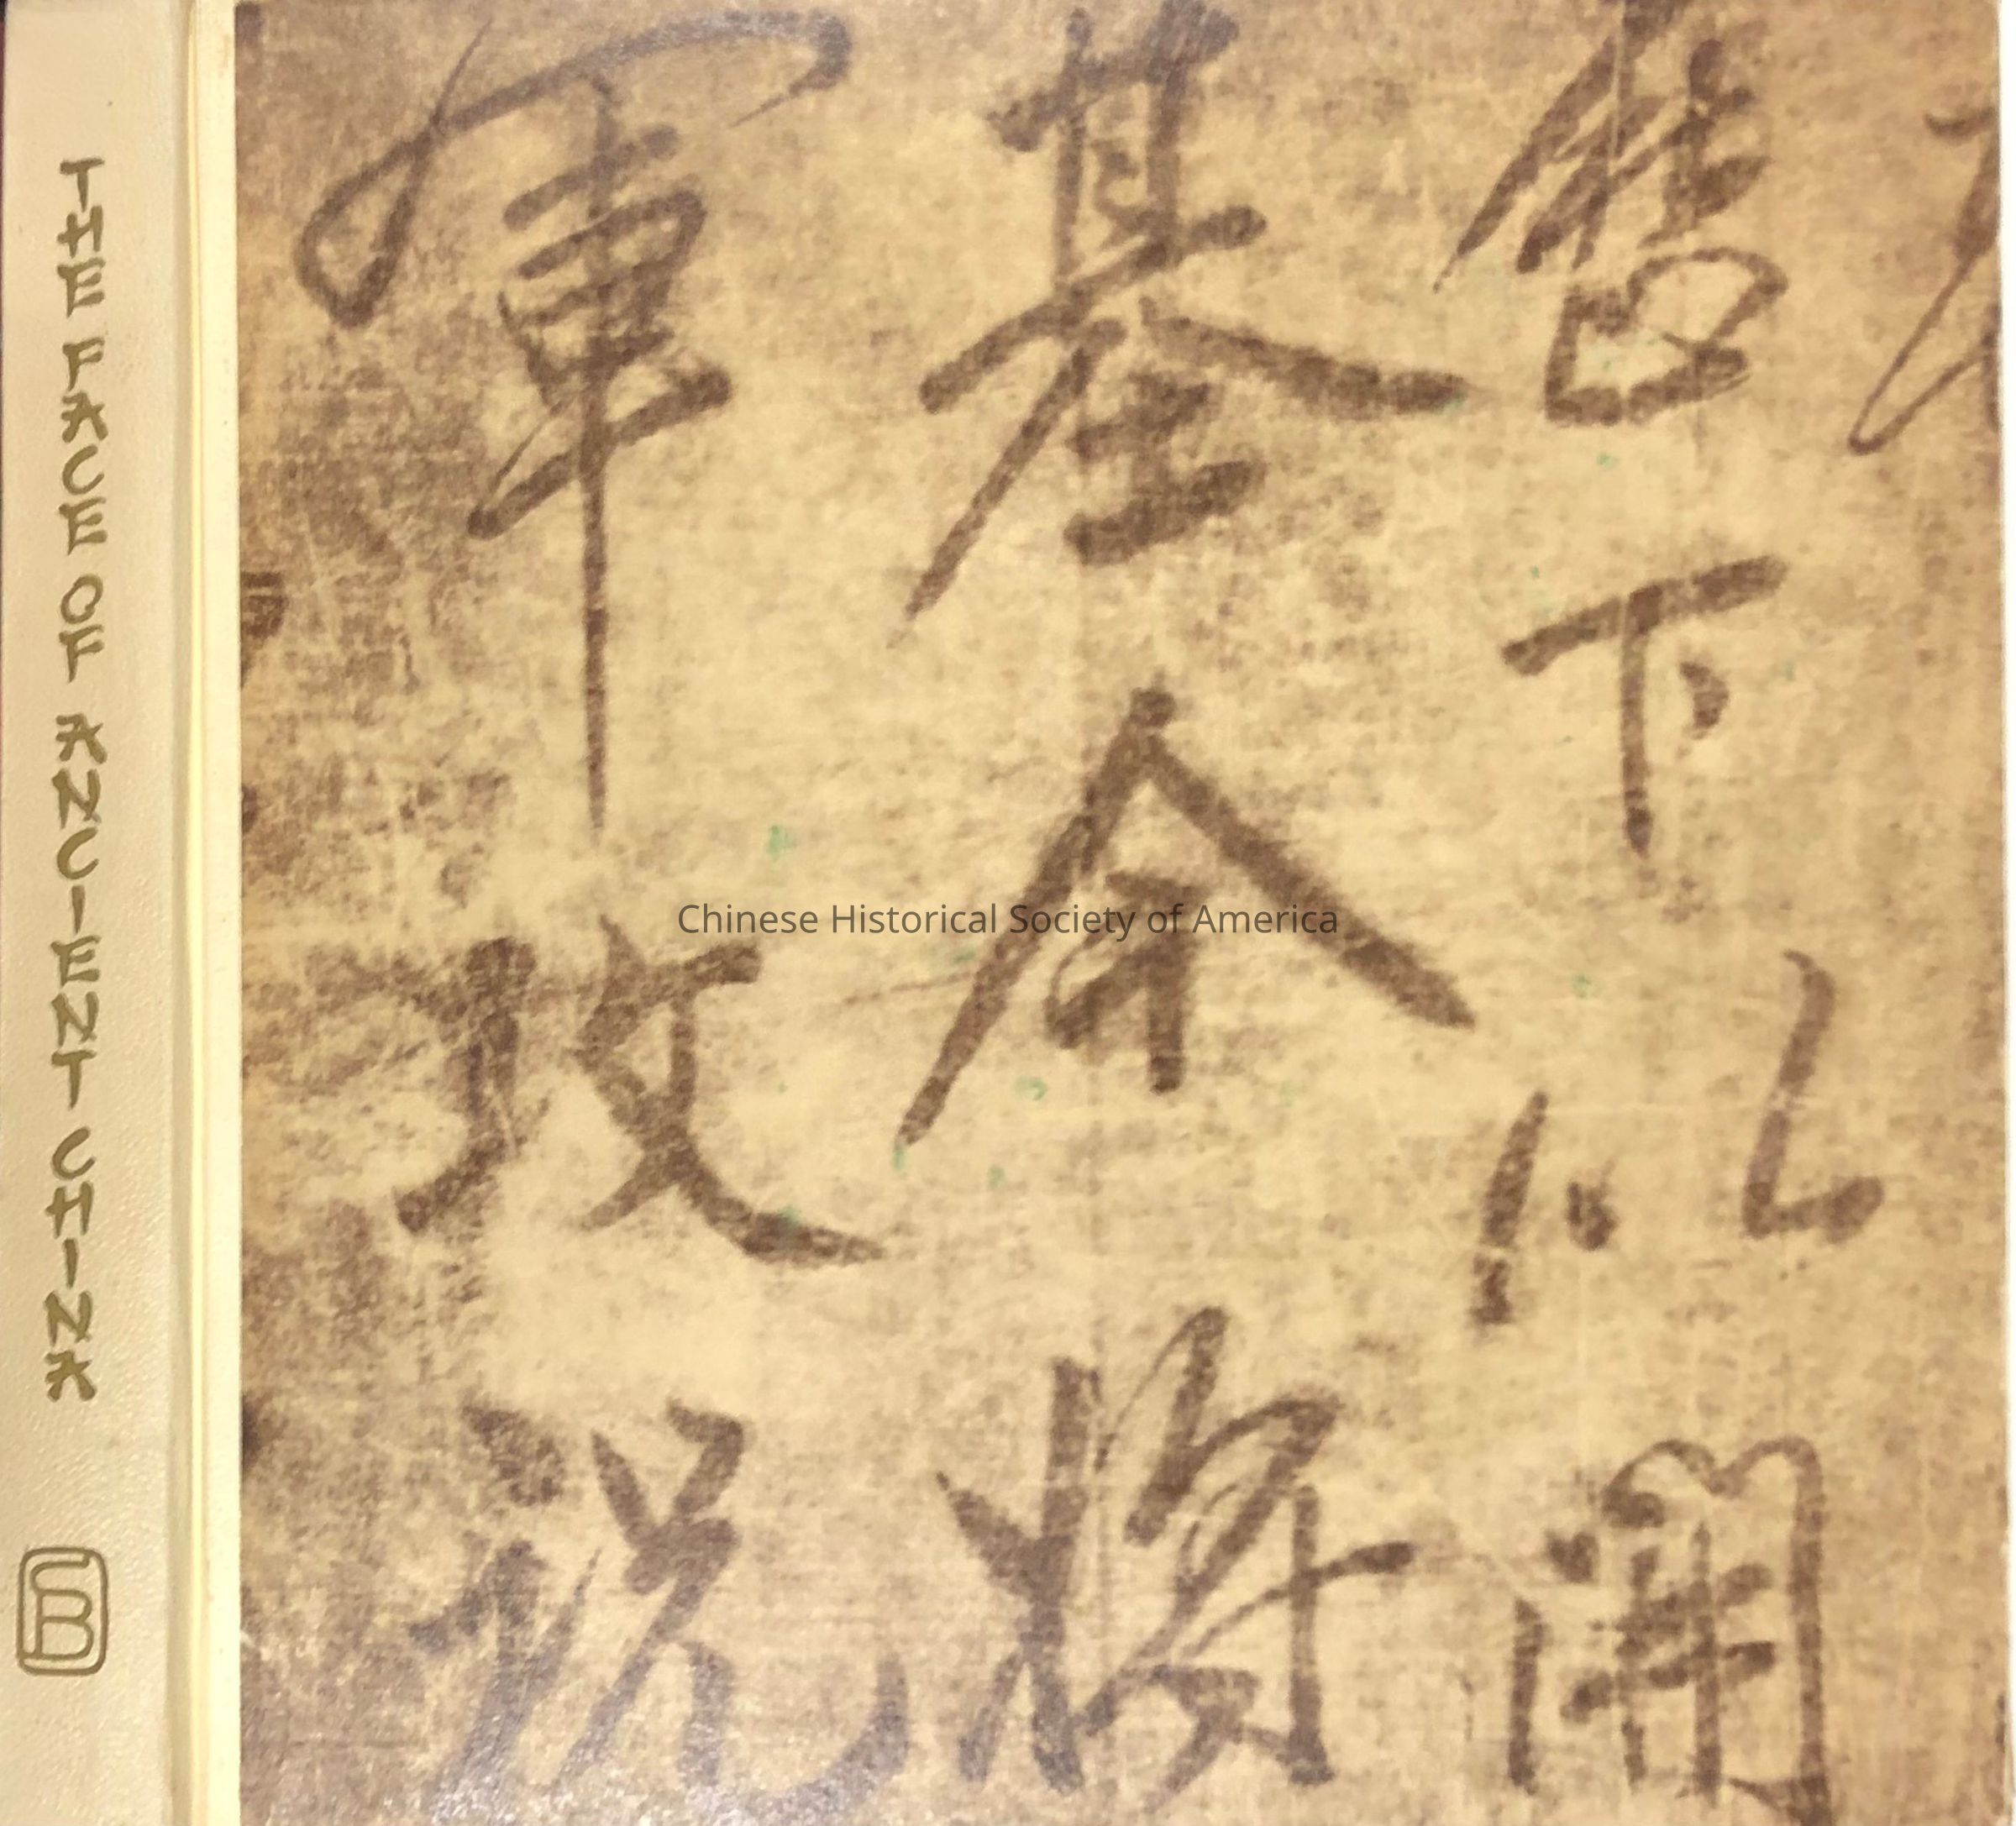 THE FACE OF ANCIENT CHINA
CB
下以開
基令將
軍攻説
Chinese Historical Society of America